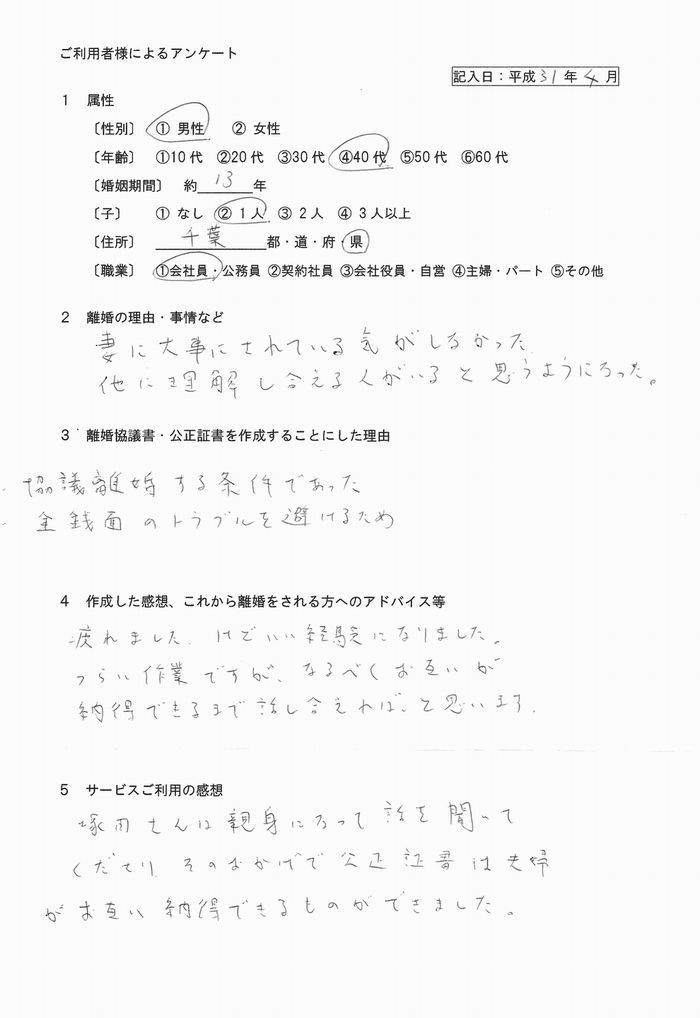 ご利用者様によるアンケート
記入日：平成31年4月
1 属性
〔性別〕 ① 男性 ② 女性
〔年齢〕 ①10代 ②20代 ③30代 ④40代 ⑤50代 ⑥60代
〔婚姻期間〕 約13年
〔子〕 ① なし ② 1人 ③ 2人 ④ 3人以上
〔住所〕 千葉 都・道・府・県
〔職業〕 ①会社員・公務員 ②契約社員 ③会社役員・自営 ④主婦・パート ⑤その他
2 離婚の理由・事情など
妻に大事にされている気がしなかった
他に理解し合える人がいると思うようになった。
3 離婚協議書・公正証書を作成することにした理由
・協議離婚する条件であった
・金銭面のトラブルを避けるため
4 作成した感想、これから離婚をされる方へのアドバイス等
疲れました。けどいい経験になりました。
つらい作業ですが、なるべくお互いが
納得できるまで話し合えればと思います。
5 サービスご利用の感想
塚田さんは親身になって話を聞いて
くださり、そのおかげで公正証書は夫婦
がお互い納得できるものができました。